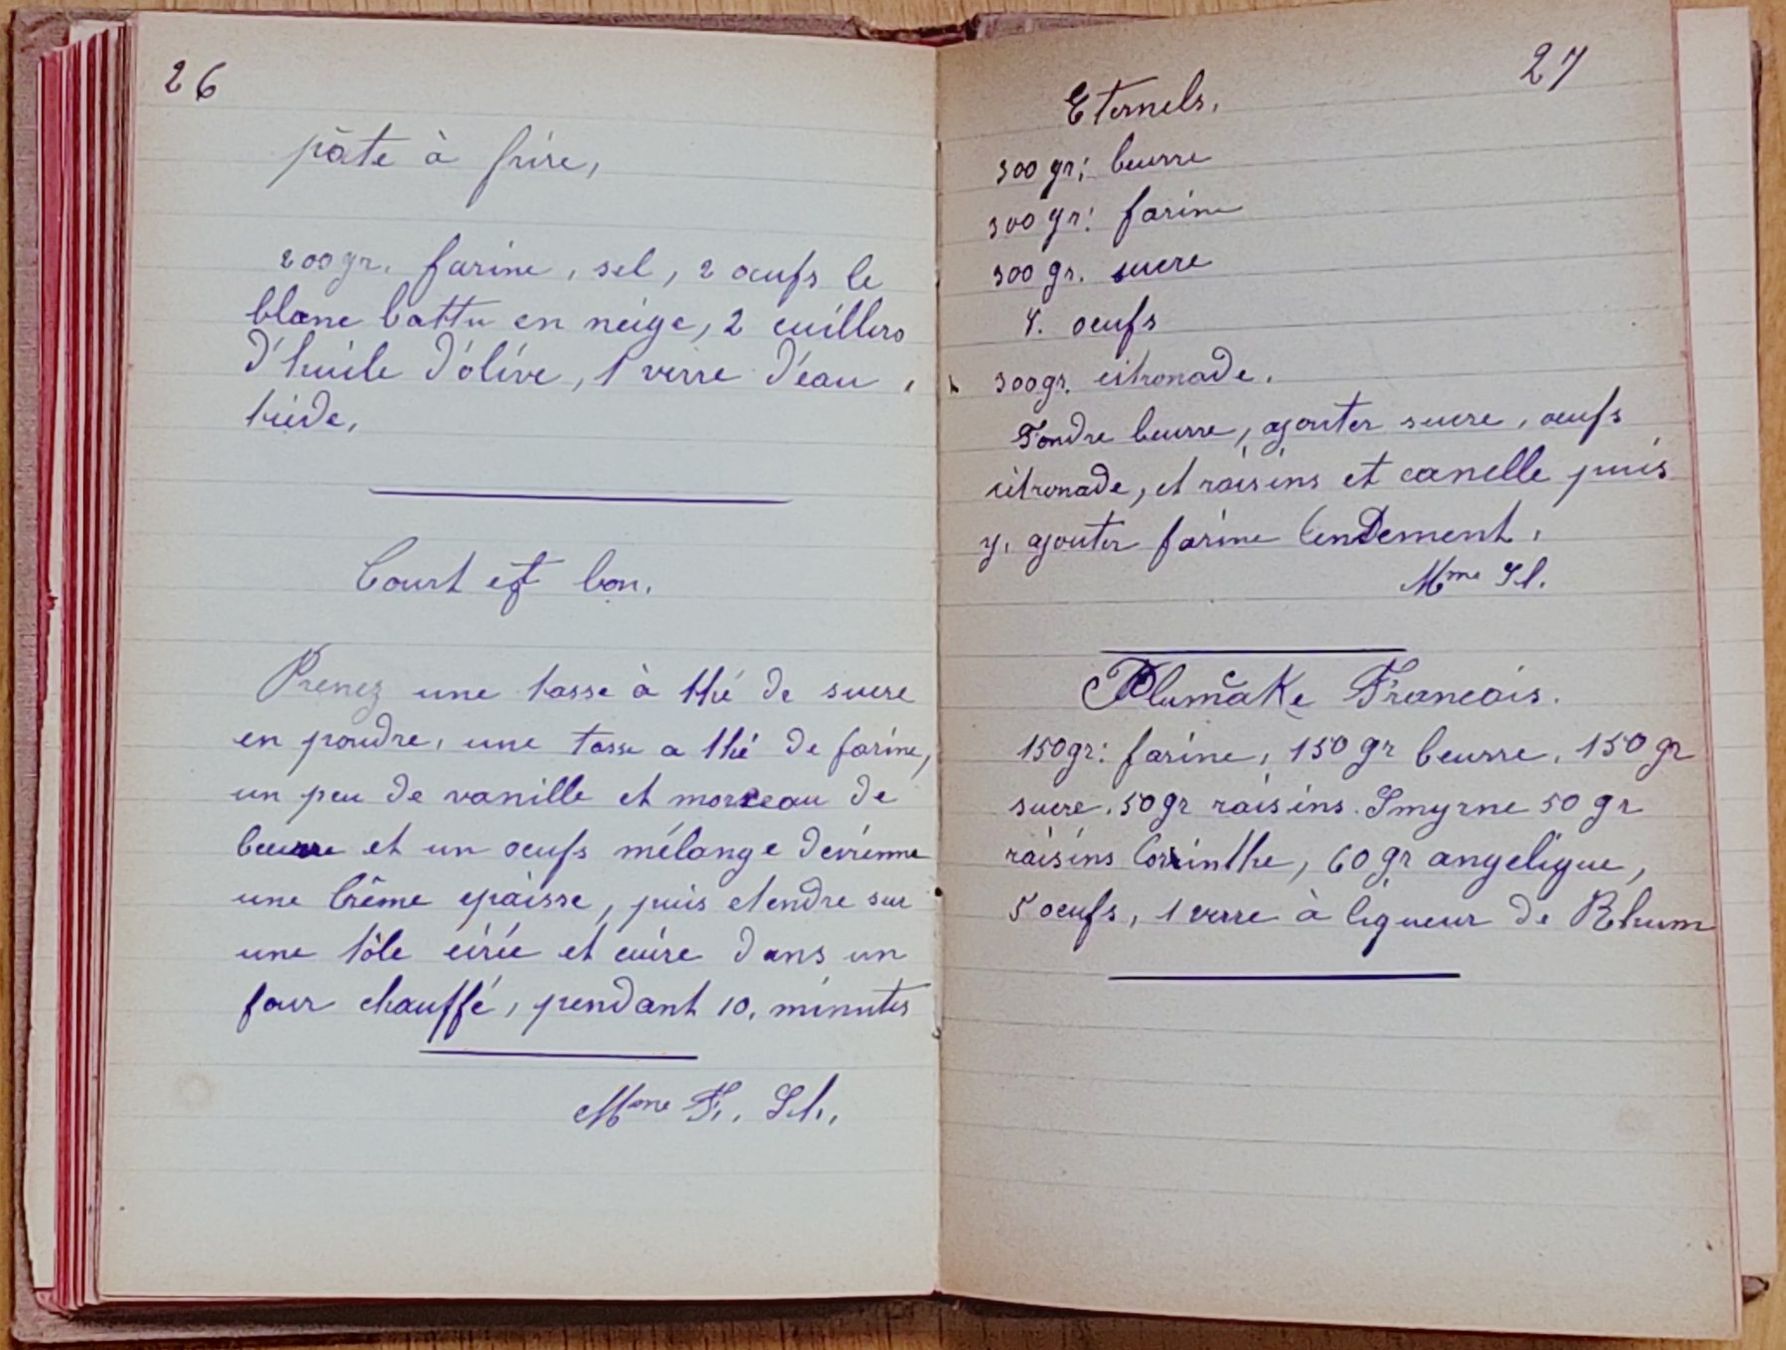 26
pâte à frire,
200 gr. farine, sel, 2 oeufs le
blanc battu en neige, 2 cuillers
d'huile d'ólive, 1 verre d'eau
tiède,
Court et bon.
Prenez une tasse à thé de sucre
en poudre, une tasse a thé de farine,
un peu de vanille et morceau de
beurre et un oeufs mélange devienne
une crême epaisse, puis etendre sur
une tôle cirée et cuire dans un
four chauffé, pendant 10. minutes
Mme F. Sch.
27
Eternels.
300 gr: beurre
300 gr: farine
300 gr. sucre
4. oeufs
300 gr. citronade.
Fondre beurre, ajouter sucre, oeufs
citronade, et raisins et canelle puis
y. ajouter farine lendement.
Mme
Plumcake Francais.
150 gr: farine, 150 gr beurre, 150 gr
sucre. 50 gr raisins Smyrne 50 gr
raisins Corinthe, 60 gr angelique,
5 oeufs, 1 verre à liqueur de Rhum